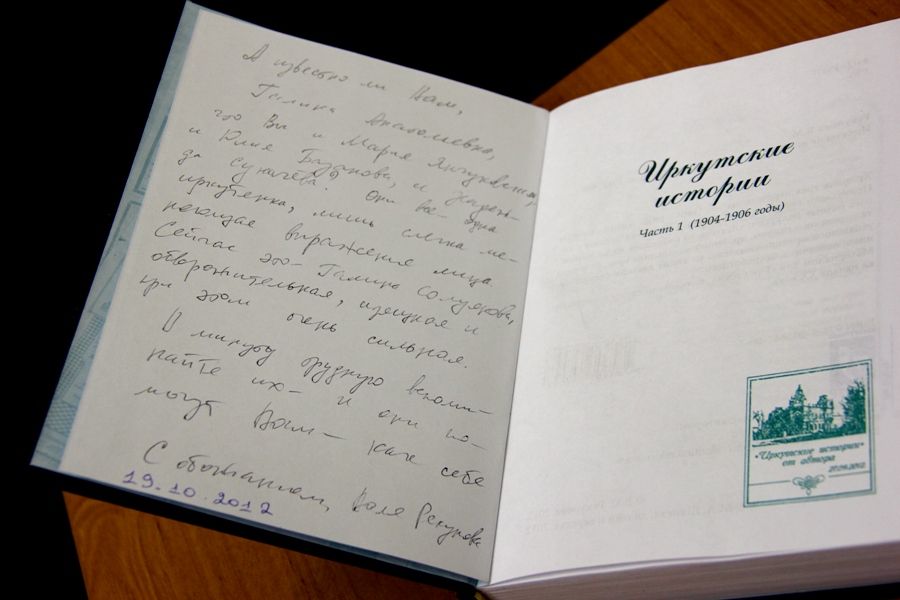 А известно ли Вам,
Галина Анатольевна,
что Вы и Мария Янчуковская,
и Юлия Базанова, и Надеж-
да Сукачёва? Они все – одна
иркутянка, лишь слегка ме-
няющая выражения лица.
Сейчас это – Галина Солуянова,
обворожительная, изящная и
при этом очень сильная.
В минуту трудную вспоми-
найте их – и они по-
могут Вам – как себе
С обожанием, Валя Рекунова
19.10.2012
Иркутские
истории
Часть 1 (1904-1906 годы)
"Иркутские истории"
от автора